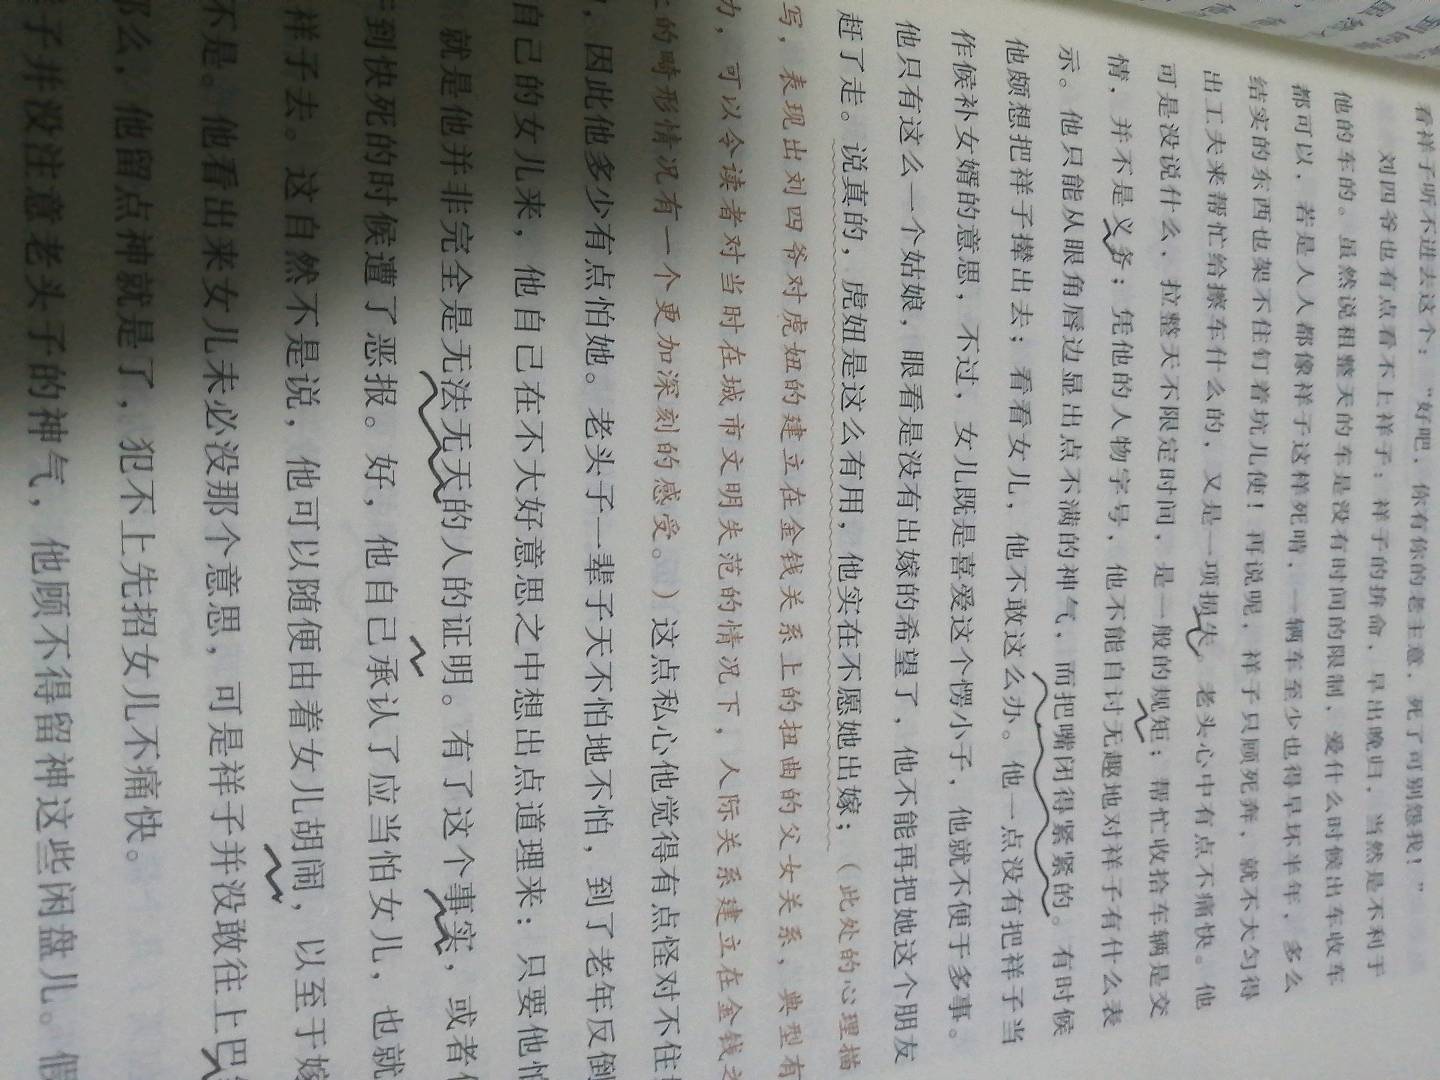 看祥子听不进去这个：“好吧，你有你的老主意，死了可别怨我！”
刘四爷也有点看不上祥子：祥子的拚命，早出晚归，当然是不利于
他的车的。虽然说租整天的车是没有时间的限制，爱什么时候出车收车
都可以，若是人人都像祥子这样死啃，一辆车至少也得早坏半年，多么
结实的东西也架不住钉着坑儿使！再说呢，祥子只顾死奔，就不大匀得
出工夫来帮忙给擦车什么的，又是一项损失。老头心中有点不痛快。他
可是没说什么，拉整天不限定时间，是一般的规矩；帮忙收拾车辆是交
情，并不是义务；凭他的人物字号，他不能自讨无趣地对祥子有什么表
示。他只能从眼角唇边显出点不满的神气，而把嘴闭得紧紧的。有时候
他颇想把祥子撵出去；看看女儿，他不敢这么办。他一点没有把祥子当
作候补女婿的意思，不过，女儿既是喜爱这个愣小子，他就不便于多事。
他只有这么一个姑娘，眼看是没有出嫁的希望了，他不能再把她这个朋友
赶了走。说真的，虎妞是这么有用，他实在不愿她出嫁；（此处的心理描
写，表现出刘四爷对虎妞的建立在金钱关系上的扭曲的父女关系，典型有
力，可以令读者对当时在城市文明失范的情况下，人际关系建立在金钱之
上的畸形情况有一个更加深刻的感受。）这点私心他觉得有点怪对不住
，因此他多少有点怕她。老头子一辈子天不怕地不怕，到了老年反倒
自己的女儿来，他自己在不大好意思之中想出点道理来：只要他怕
就是他并非完全是无法无天的人的证明。有了这个事实，或者
到快死的时候遭了恶报。好，他自己承认了应当怕女儿，也就
样子去。这自然不是说，他可以随便由着女儿胡闹，以至于嫁
不是。他看出来女儿未必没那个意思，可是祥子并没敢往上巴
那么，他留点神就是了，犯不上先招女儿不痛快。
子并没注意老头子的神气，他顾不得留神这些闲盘儿。假